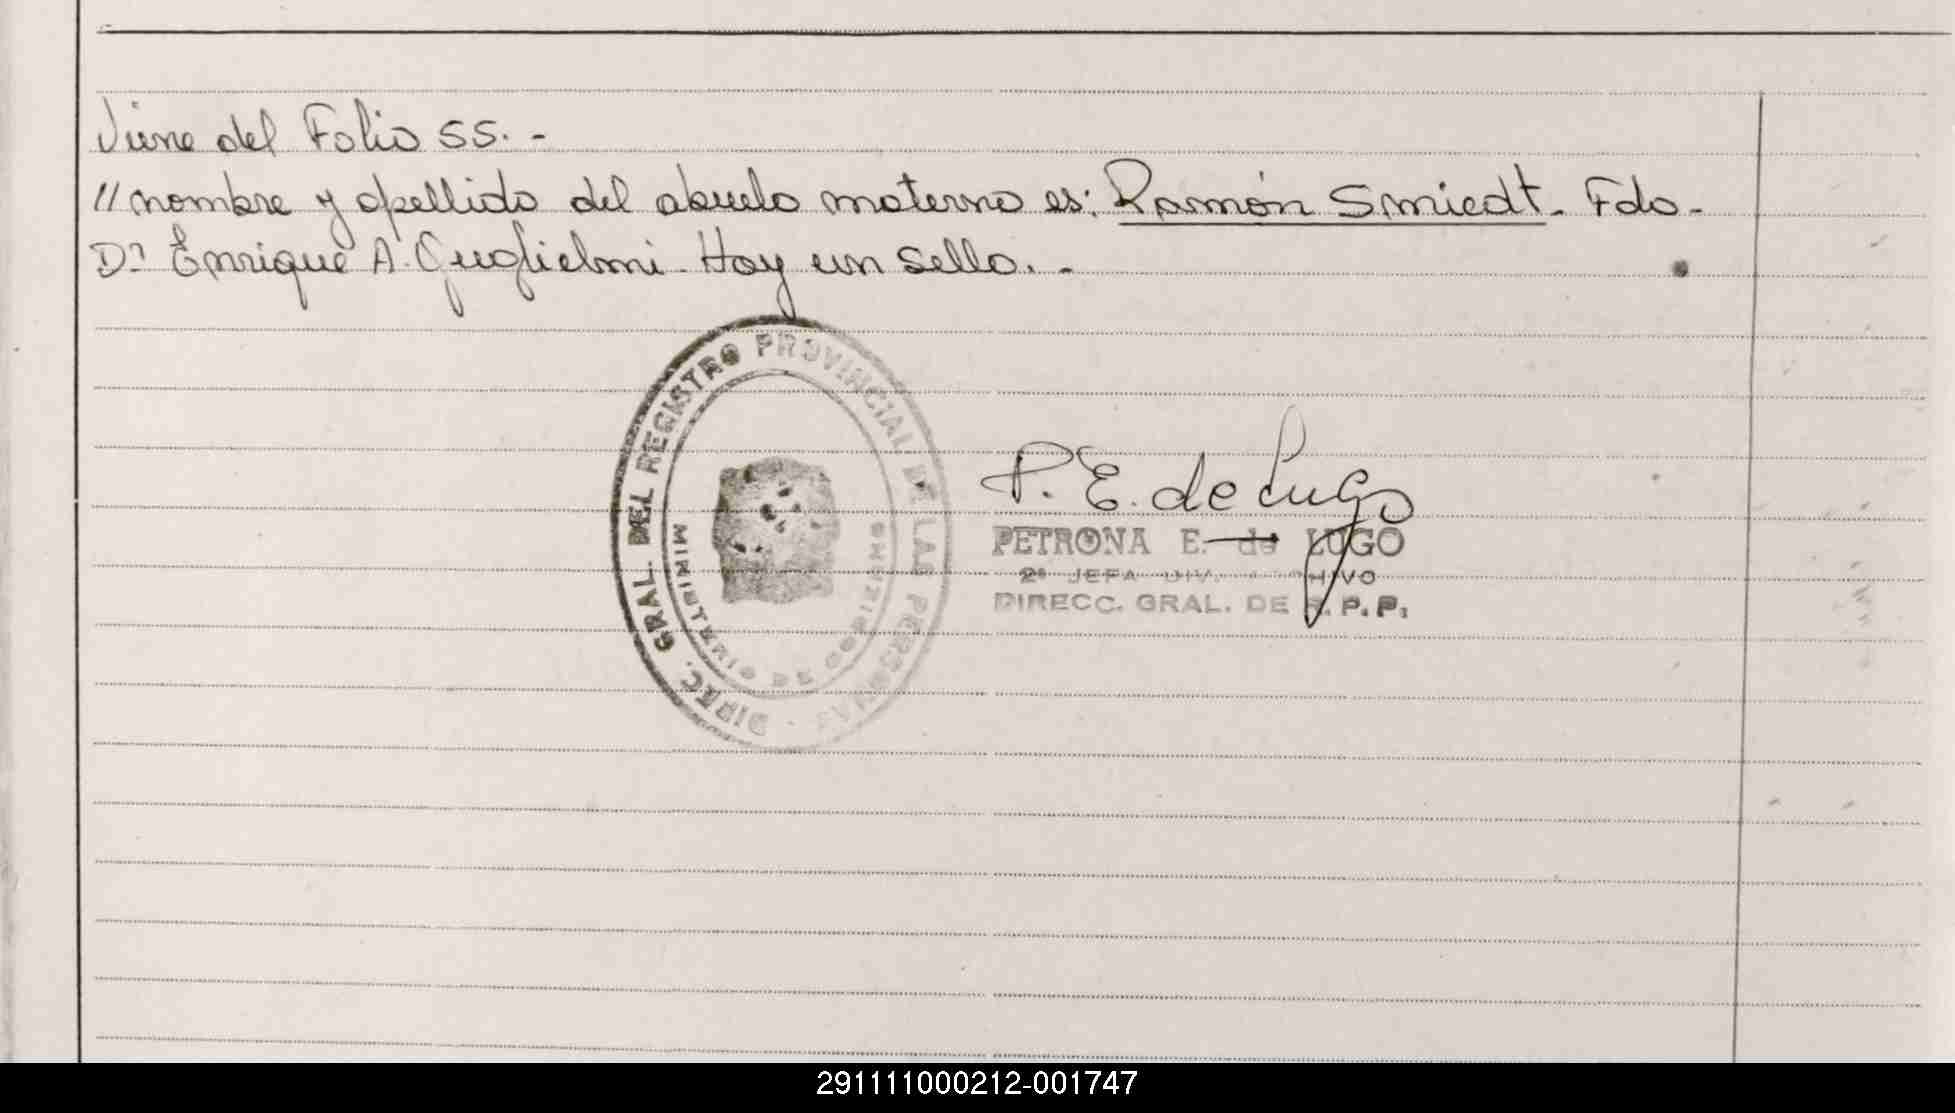 Viene del Folio 55. -
// nombre y apellido del abuelo materno es: Ramón Smiedt. Fdo.
Dr Enrique A. Guglielmi. Hay un sello. -
DIREC. GRAL. DEL REGISTRO PROVINCIAL DE LAS PERSONAS
MINISTERIO DE GOBIERNO
P. E. de Lugo
PETRONA E. de LUGO
2ª JEFA DIV. ARCHIVO
DIRECC. GRAL. DE R. P. P.
291111000212-001747